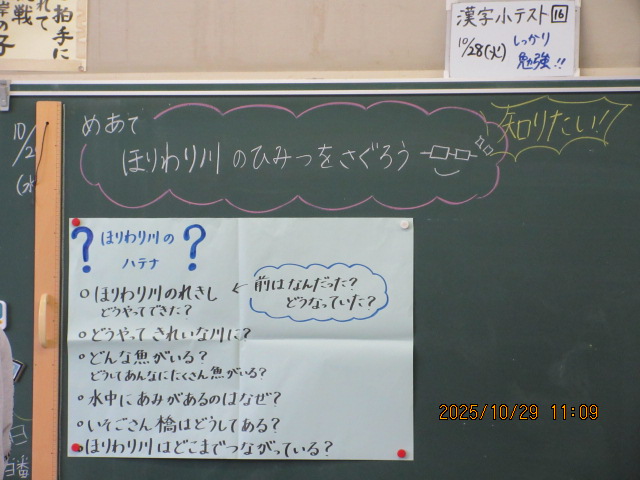 拍手に
漢字小テスト16
10/28(火) しっかり
勉強!!
めあて
ほりわり川のひみつをさぐろう
知りたい!
?ほりわり川の?
ハテナ
○ほりわり川のれきし
どうやってできた?
←前はなんだった?
どうなっていた?
○どうやってきれいな川に?
○どんな魚がいる?
どうしてあんなにたくさん魚がいる?
○水中にあみがあるのはなぜ?
○いそごさん橋はどうしてある?
○ほりわり川はどこまでつながっている?
2025/10/29 11:09